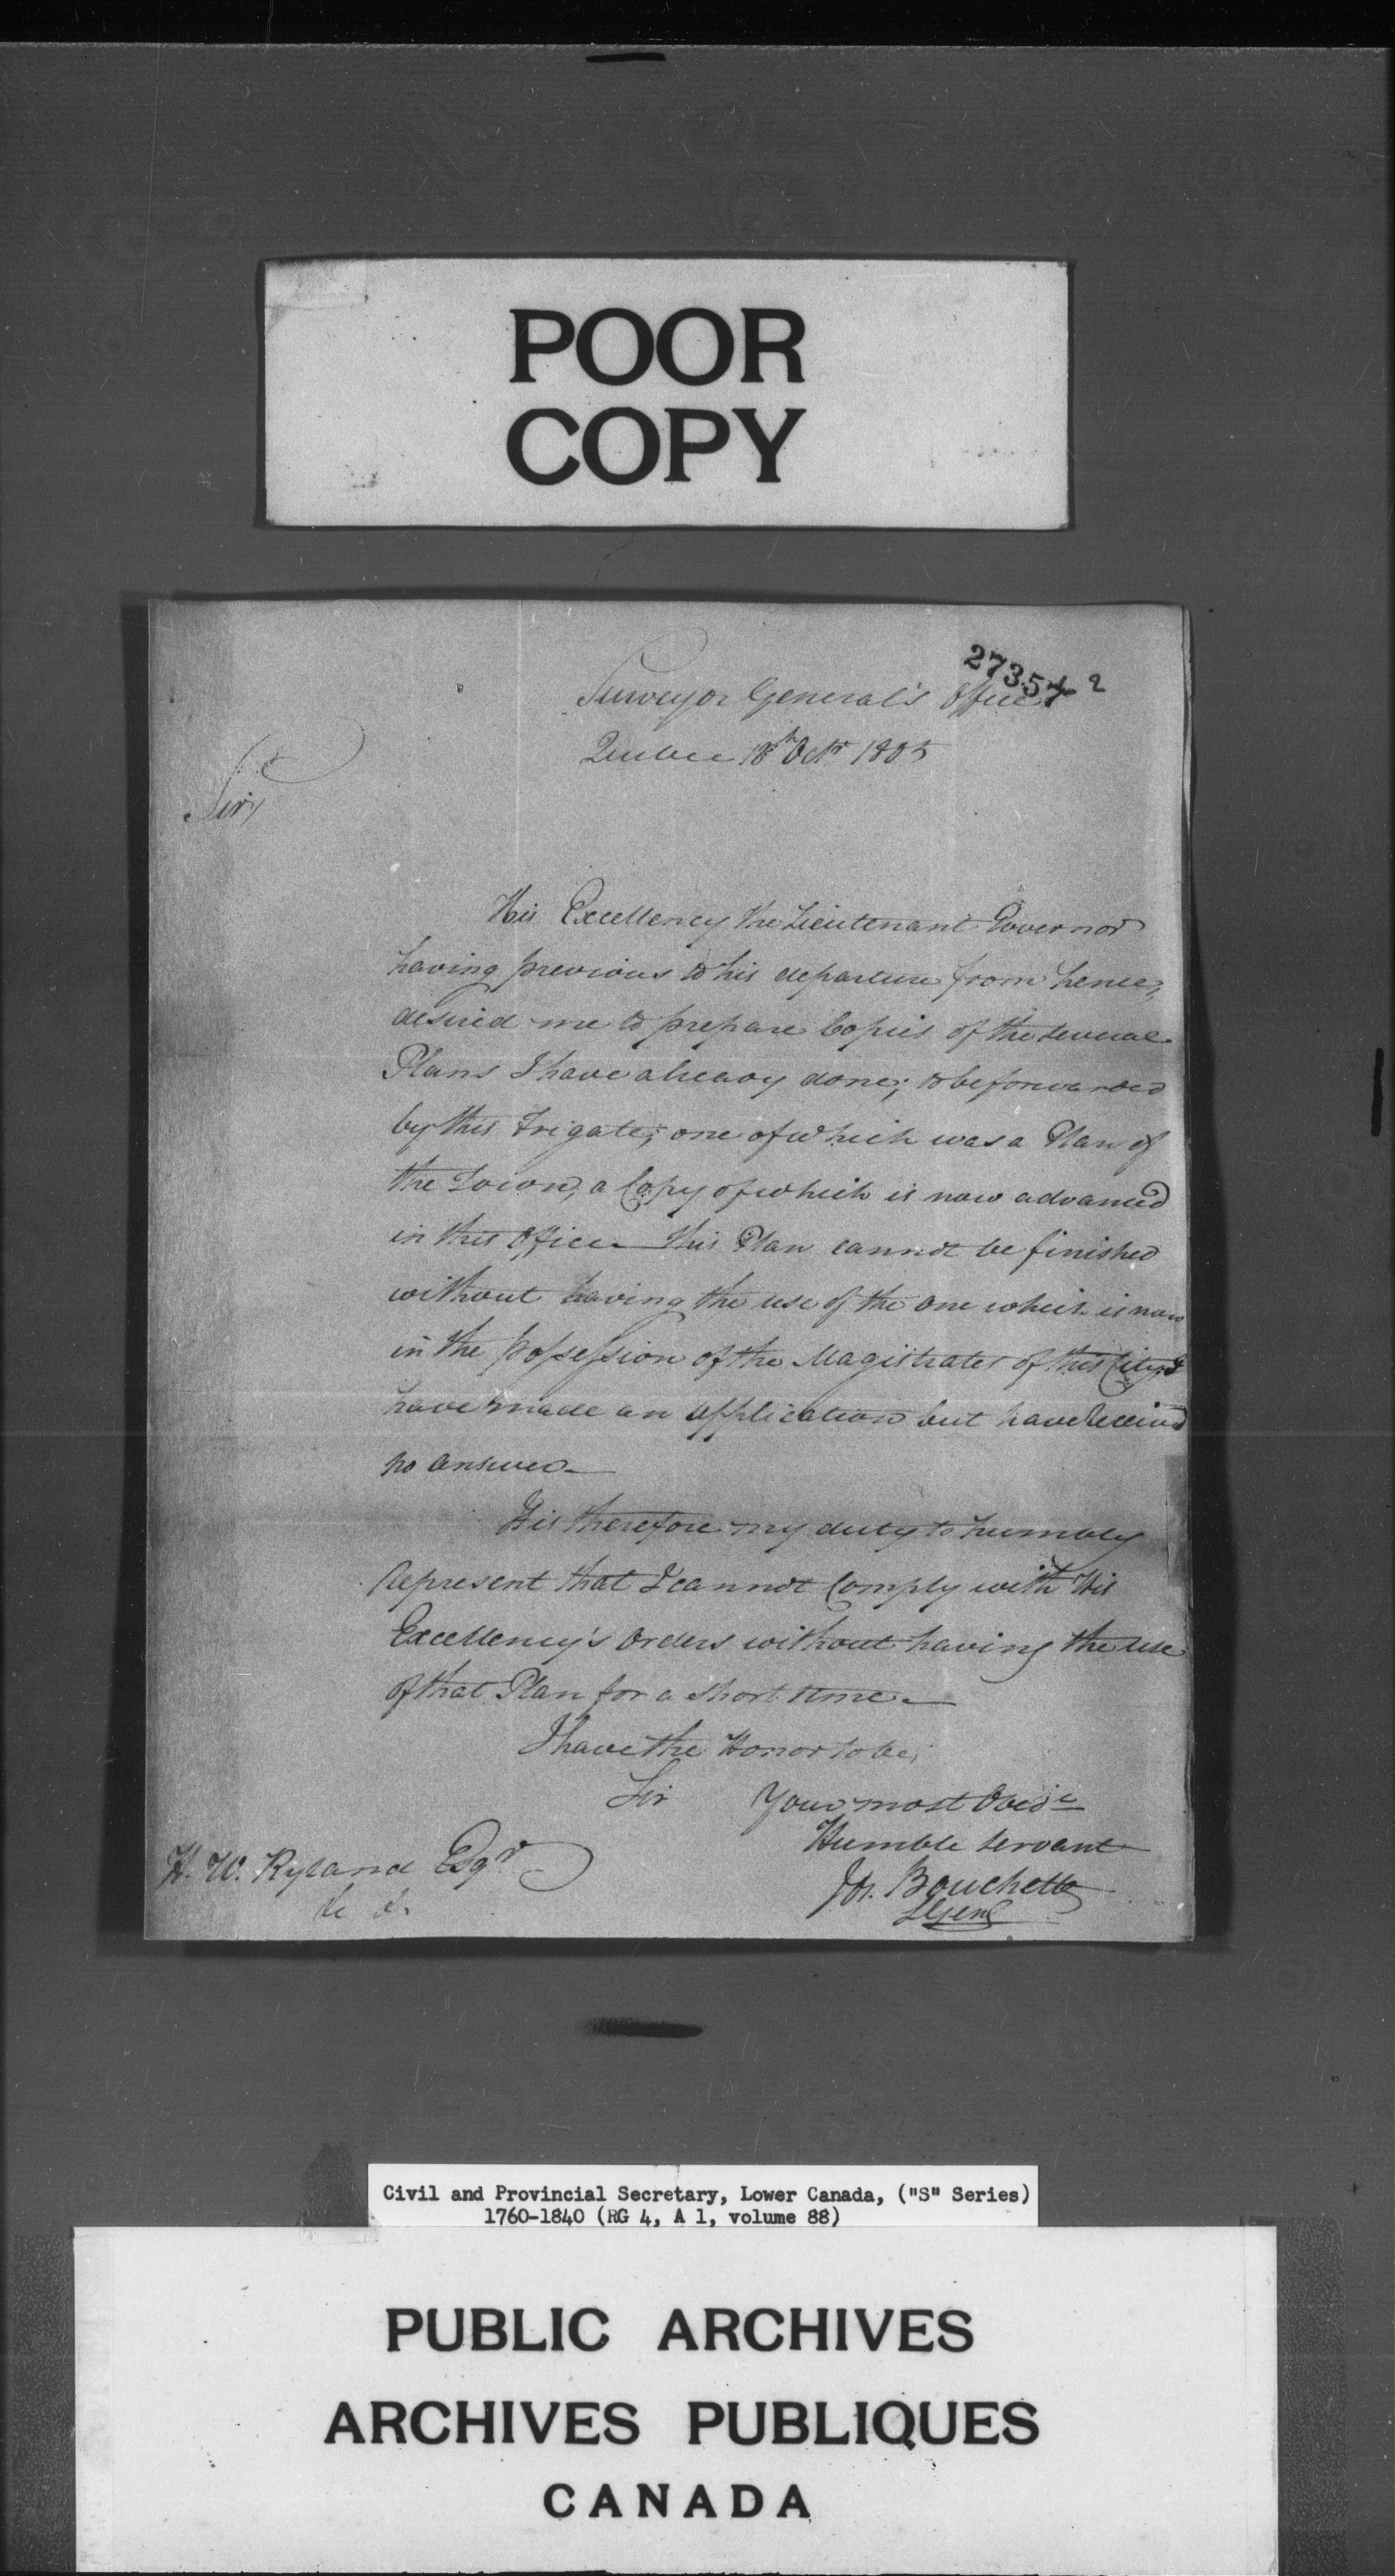 POOR
COPY
27357 2
Surveyor General's Office
Quebec 18th Octr 1805
Sir,
His Excellency the Lieutenant Governor
having previous to his departure from hence,
desired me to prepare Copies of the several
Plans I have already done; to be forwarded
by this Frigate; one of which was a Plan of
the Town, a Copy of which is now advanced
in this Office — this Plan cannot be finished
without having the use of the one which is now
in the possession of the Magistrates of this City, I
have made an application but have Received
no answer —
It is therefore my duty to humbly
Represent that I cannot Comply with His
Excellency's Orders without having the use
of that Plan for a short time —
I have the Honor to be,
Sir Your most Obedt
Humble servant
H. W. Ryland Esqr
&c &.
Jos. Bouchette
SGenl
Civil and Provincial Secretary, Lower Canada, ("S" Series)
1760-1840 (RG 4, A 1, volume 88)
PUBLIC ARCHIVES
ARCHIVES PUBLIQUES
CANADA